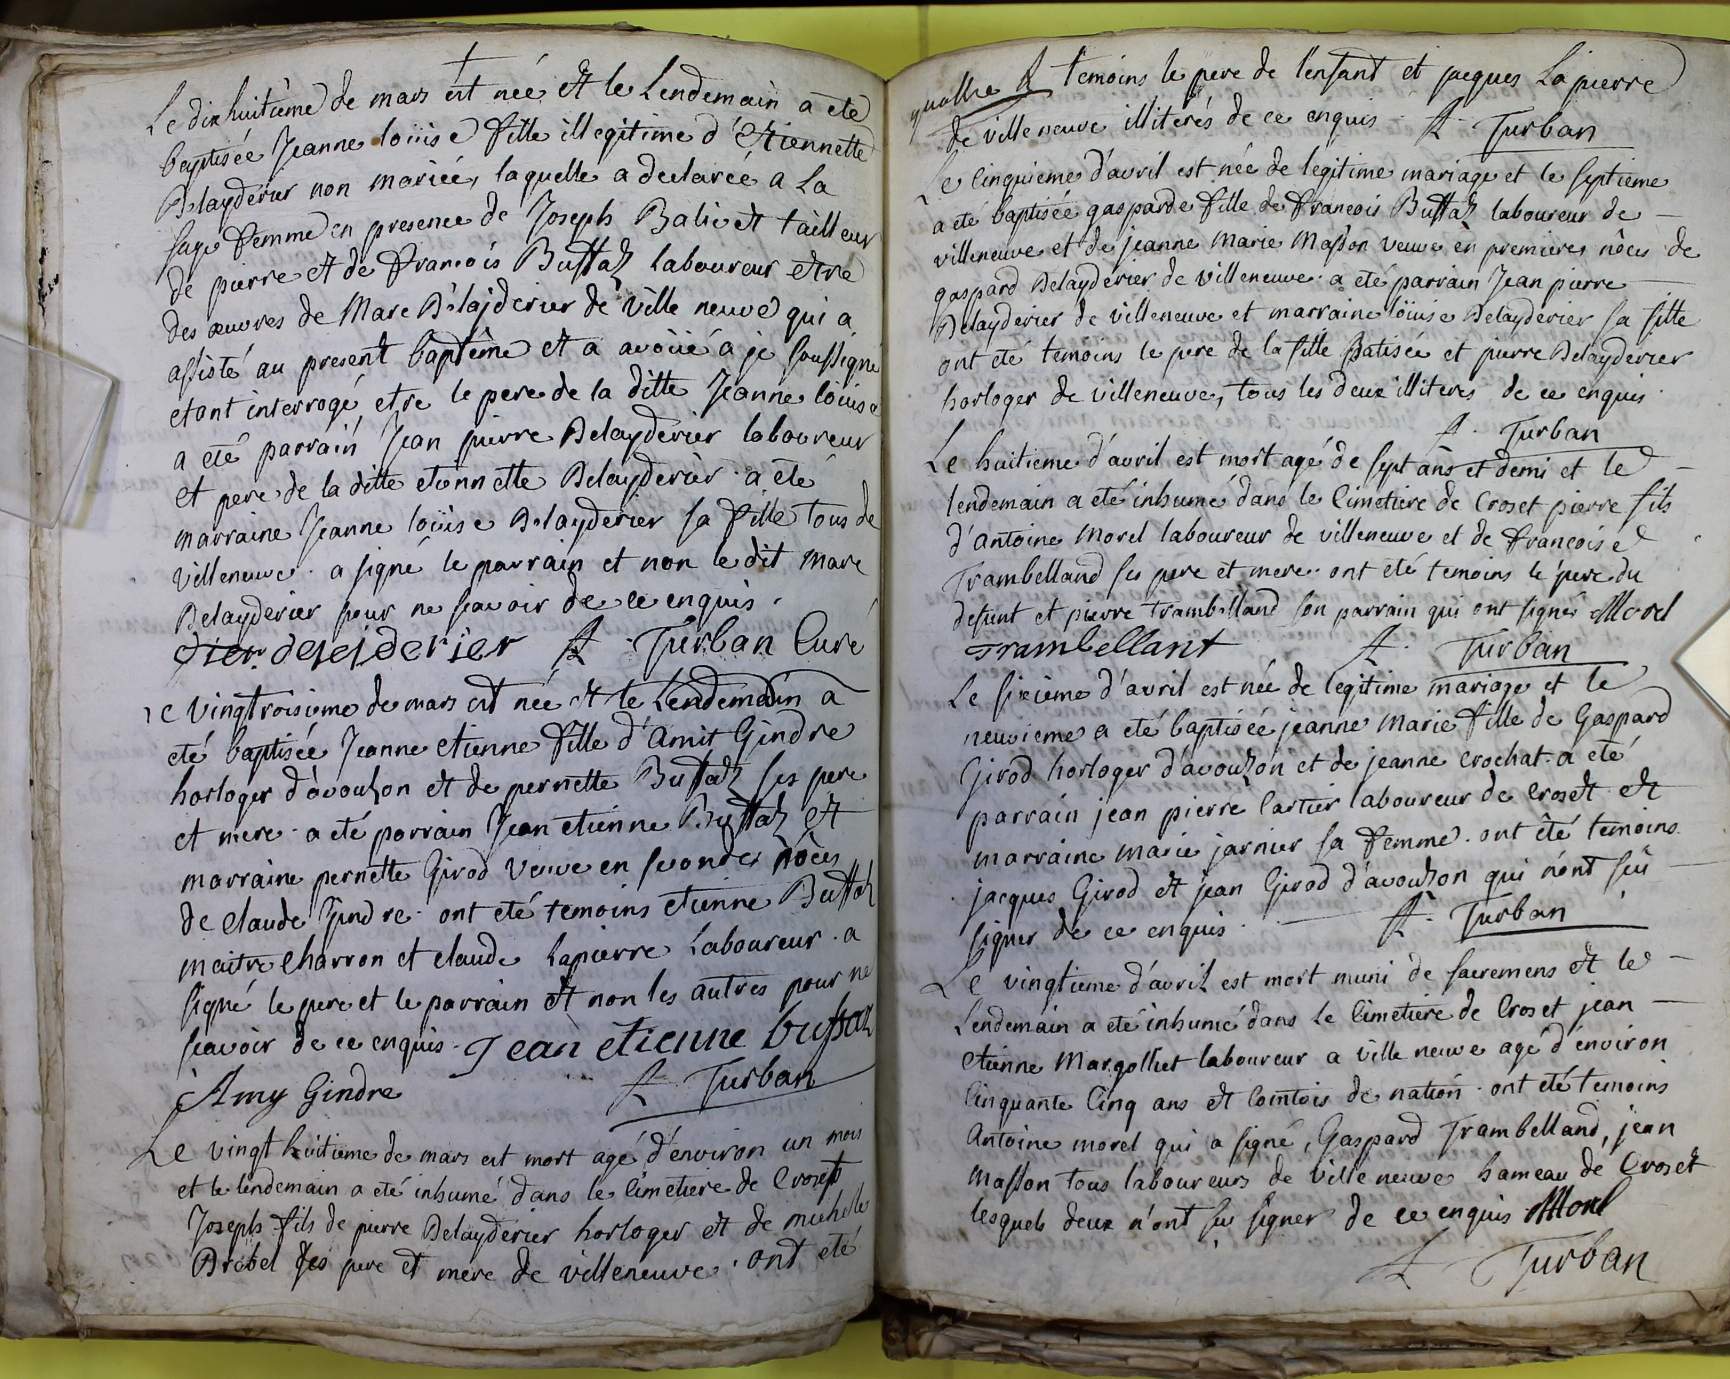 Le dix huitième de mars est née et le Lendemain a eté
baptisée Jeanne loüise fille illegitime d'Etiennette
Delayderier non mariée, laquelle a declarée a La
sage femme en presence de Joseph Baliest tailleur
de pierre et de François Bussaz laboureur etre
des œuvres de Marc Delajderier de ville neuve qui a
assisté au present baptême et a avoüé a je soussigné
etant interrogé etre le pere de la ditte Jeanne loüise
a eté parrain Jean pierre Delayderier laboureur
et pere de la ditte etiennette Delayderier a eté
marraine Jeanne loüise Delayderier sa fille tous de
villeneuve. a signé le parrain et non le dit Marc
Delayderier pour ne scavoir de ce enquis.
delejderier Turban Curé
e vingtroisieme de mars est née et le Lendemain a
eté baptisée Jeanne etienne fille d'Amit Gindre
horloger d'avouzon et de pernette Bussaz ses pere
et mere. a eté parrain Jean etienne Bussaz et
marraine pernette Girod veuve en secondes nôces
de claude Gindre. ont eté temoins etienne Bussaz
maitre charron et claude Lapierre Laboureur. a
signé le pere et le parrain et non les autres pour ne
scavoir de ce enquis. Jean etienne bussaz
Amy Gindre Turban
Le vingt huitieme de mars est mort agé d'environ un mois
et le lendemain a eté inhumé dans le Cimetiere de Croset
Joseph fils de pierre Delayderier horloger et de michelle
Brobel ses pere et mere de villeneuve. ont eté
quattre temoins le pere de l'enfant et jacques Lapierre
de villeneuve illiterés de ce enquis. Turban
Le Cinquieme d'avril est née de legitime mariage et le septieme
a eté baptisée gasparde fille de francois Bussaz laboureur de
villeneuve et de jeanne Marie Masson veuve en premieres nôces de
gaspard Delayderier de villeneuve. a eté parrain Jean pierre
Delayderier de villeneuve et marraine loüise Delayderier sa fille
ont eté temoins le pere de la fille Batisée et pierre Delayderier
horloger de villeneuve, tous les deux illiteres de ce enquis.
Turban
Le huitieme d'avril est mort agé de sept ans et demi et le
lendemain a eté inhumé dans le Cimetiere de Croset pierre fils
d'antoine Morel laboureur de villeneuve et de françoise
Trambelland ses pere et mere. ont eté temoins le pere du
defunt et pierre trambelland son parrain qui ont signés Morel
Trambellant Turban
Le sixième d'avril est née de legitime mariage et le
neuvieme a eté baptisée jeanne Marie fille de Gaspard
Girod horloger d'avouzon et de jeanne crochat. a eté
parrain jean pierre Cartier laboureur de croset et
marraine marie jarnier sa femme. ont êté temoins
jacques Girod et jean Girod d'avouzon qui n'ont sçu
signer de ce enquis. Turban
Le vingtieme d'avril est mort muni de sacremens et le
Lendemain a eté inhumé dans Le Cimetiere de Croset jean
etienne Margolliet laboureur a ville neuve agé d'environ
Cinquante Cinq ans et Comtois de nation. ont eté temoins
Antoine morel qui a signé, Gaspard Trambelland, jean
Masson tous laboureurs de ville neuve hameau de Croset
lesquels deux n'ont sçu signer de ce enquis Morel
Turban